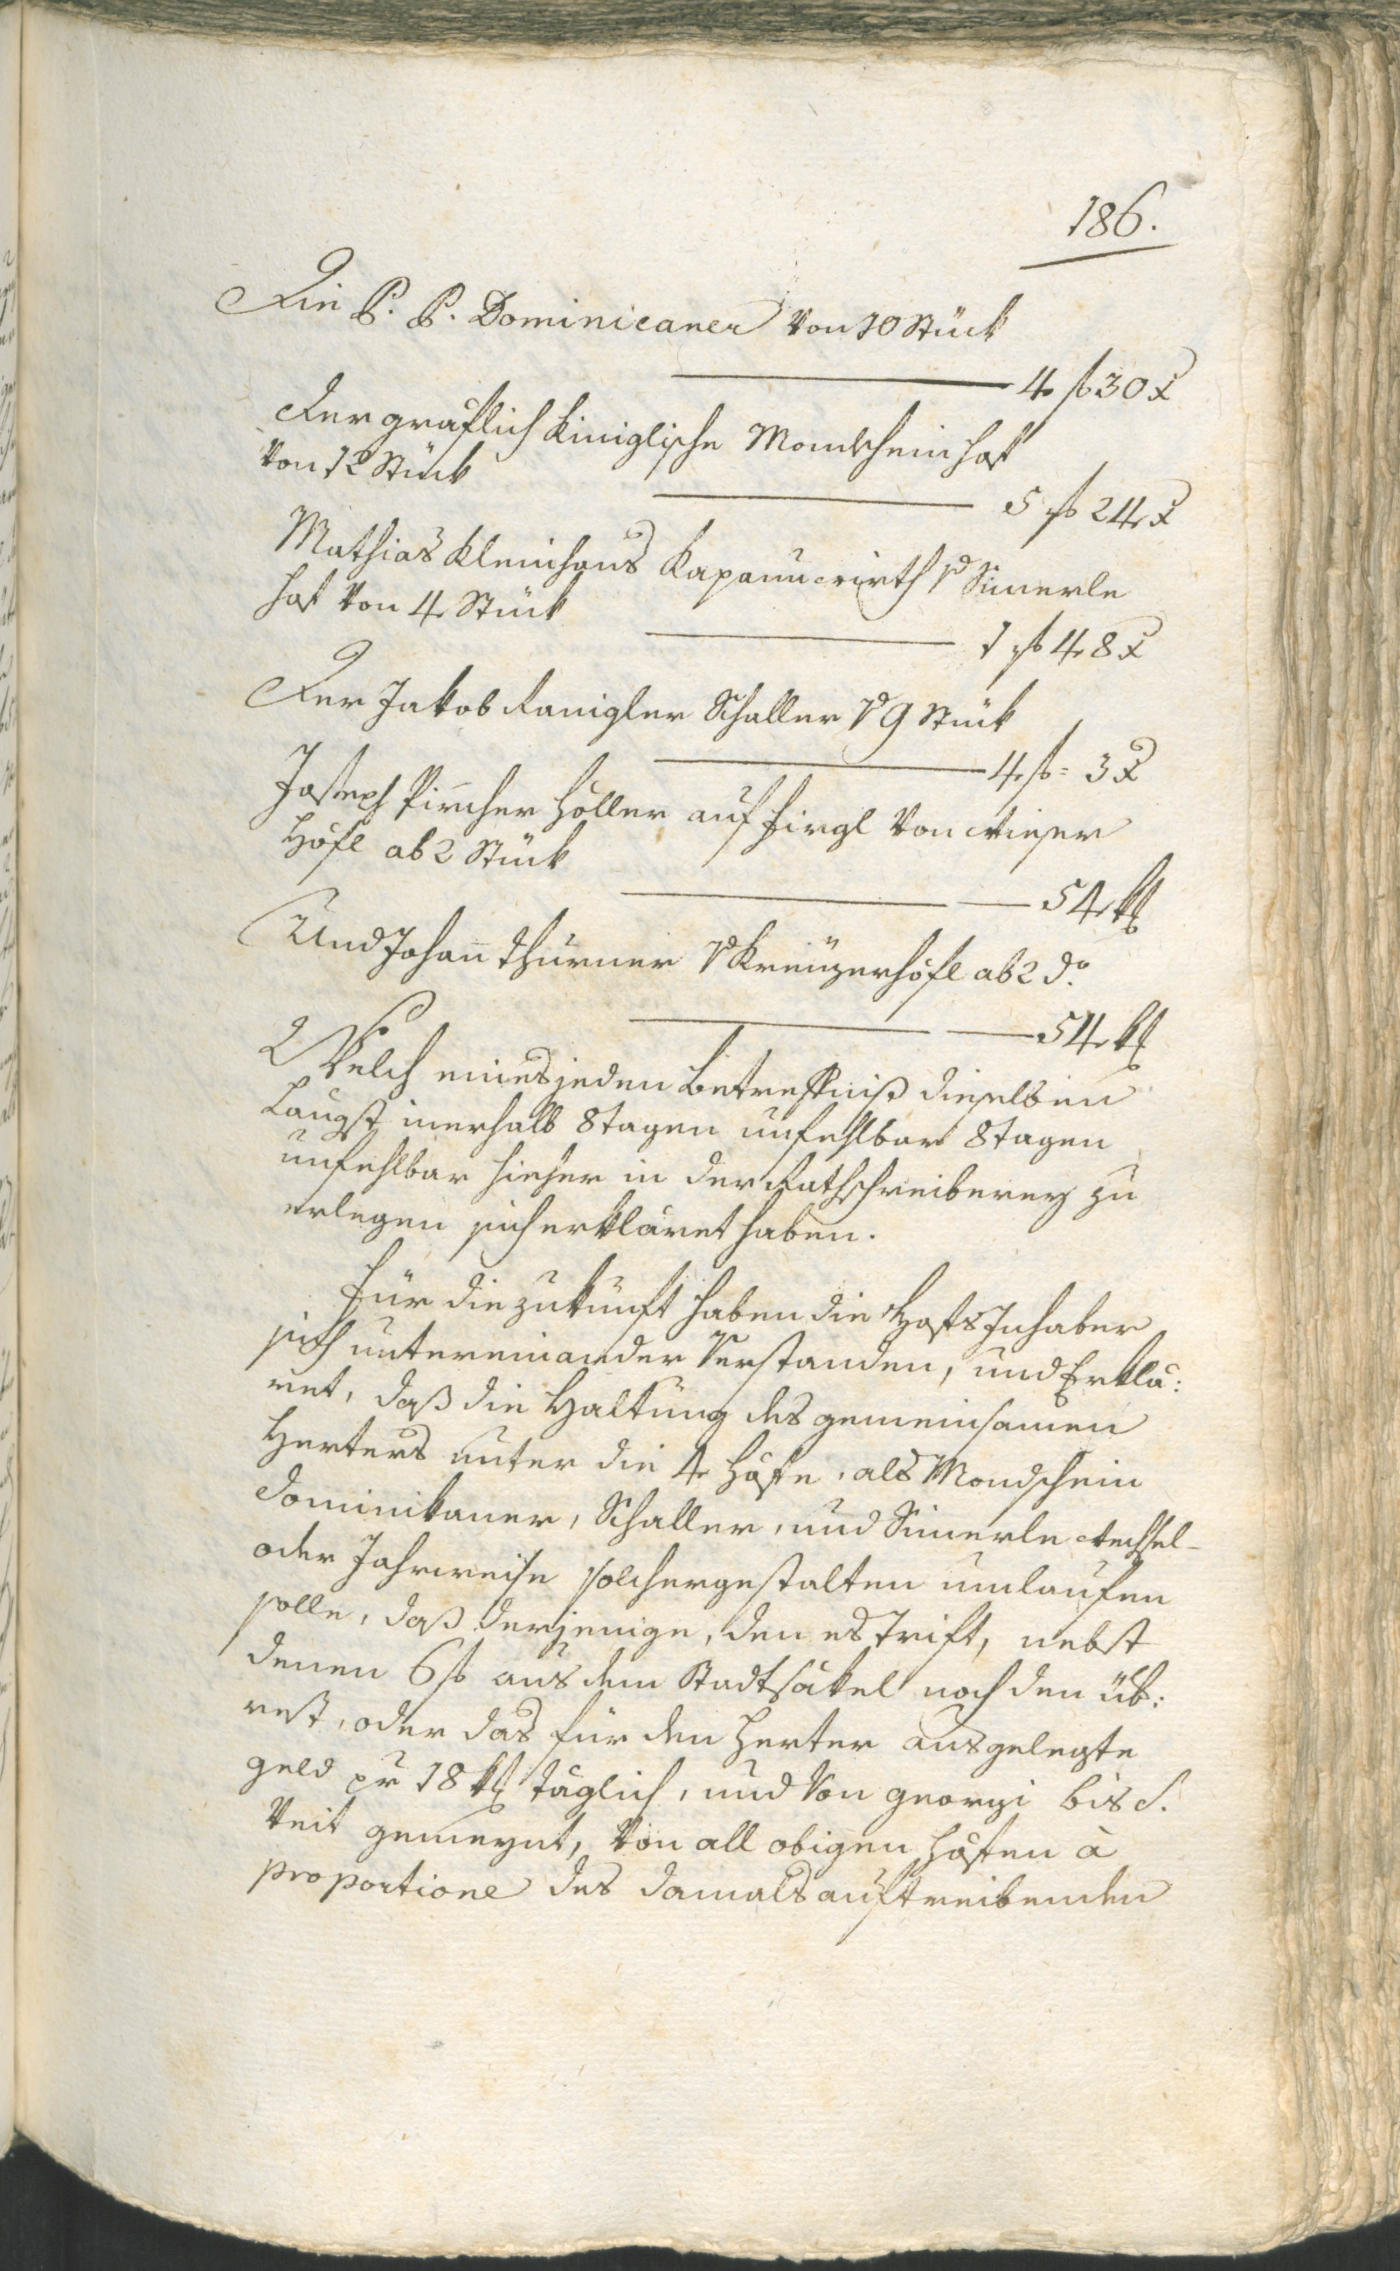 186.
Die P. P. Dominicaner von 10 Stück
4 f 30 x
der gräflich Küniglische Mondscheinhof
von 12 Stück
5 f 24 x
Mathias Kleinhans Kapauuwirth v Simerle
hof von 4 Stück
1 f 48 x
Der Jakob Ranigler Schaller v 9 Stück
4 f = 3 x
Joseph Pircher Höller auf Firgl von Wieser
Höfl ab 2 Stück
54 kr
Und Johann Thurner v Kreuzerhöfl ab 2 do.
54 kr
Welch eines jeden Betreffniß dieselben
Laugst inerhalb 8 tagen unfehlbar 8 tagen
unfehlbar hieher in der Rathschreiberey zu
erlegen sich erkläret haben.
Für die zukunft haben die Hofs Inhaber
sich untereinander Verstanden, und Erklä:
ret, daß die Haltung des gemeinsamen
Herters unter die 4 Höfe, als Mondschein
Dominikaner, Schaller, und Simerle wechsel-
oder Jahrweise solchergestalten umlaufen
solle, daß derjenige, den es Trift, nebst
denen 6 f aus dem Stadtsäkel noch den üb:
rest, oder das für den Herter ausgelegte
geld pr 18 kr täglich, und Von georgi bis S.
Veit gemeynt, Von all obigen Höfen à
proportione des damals auftreibenden